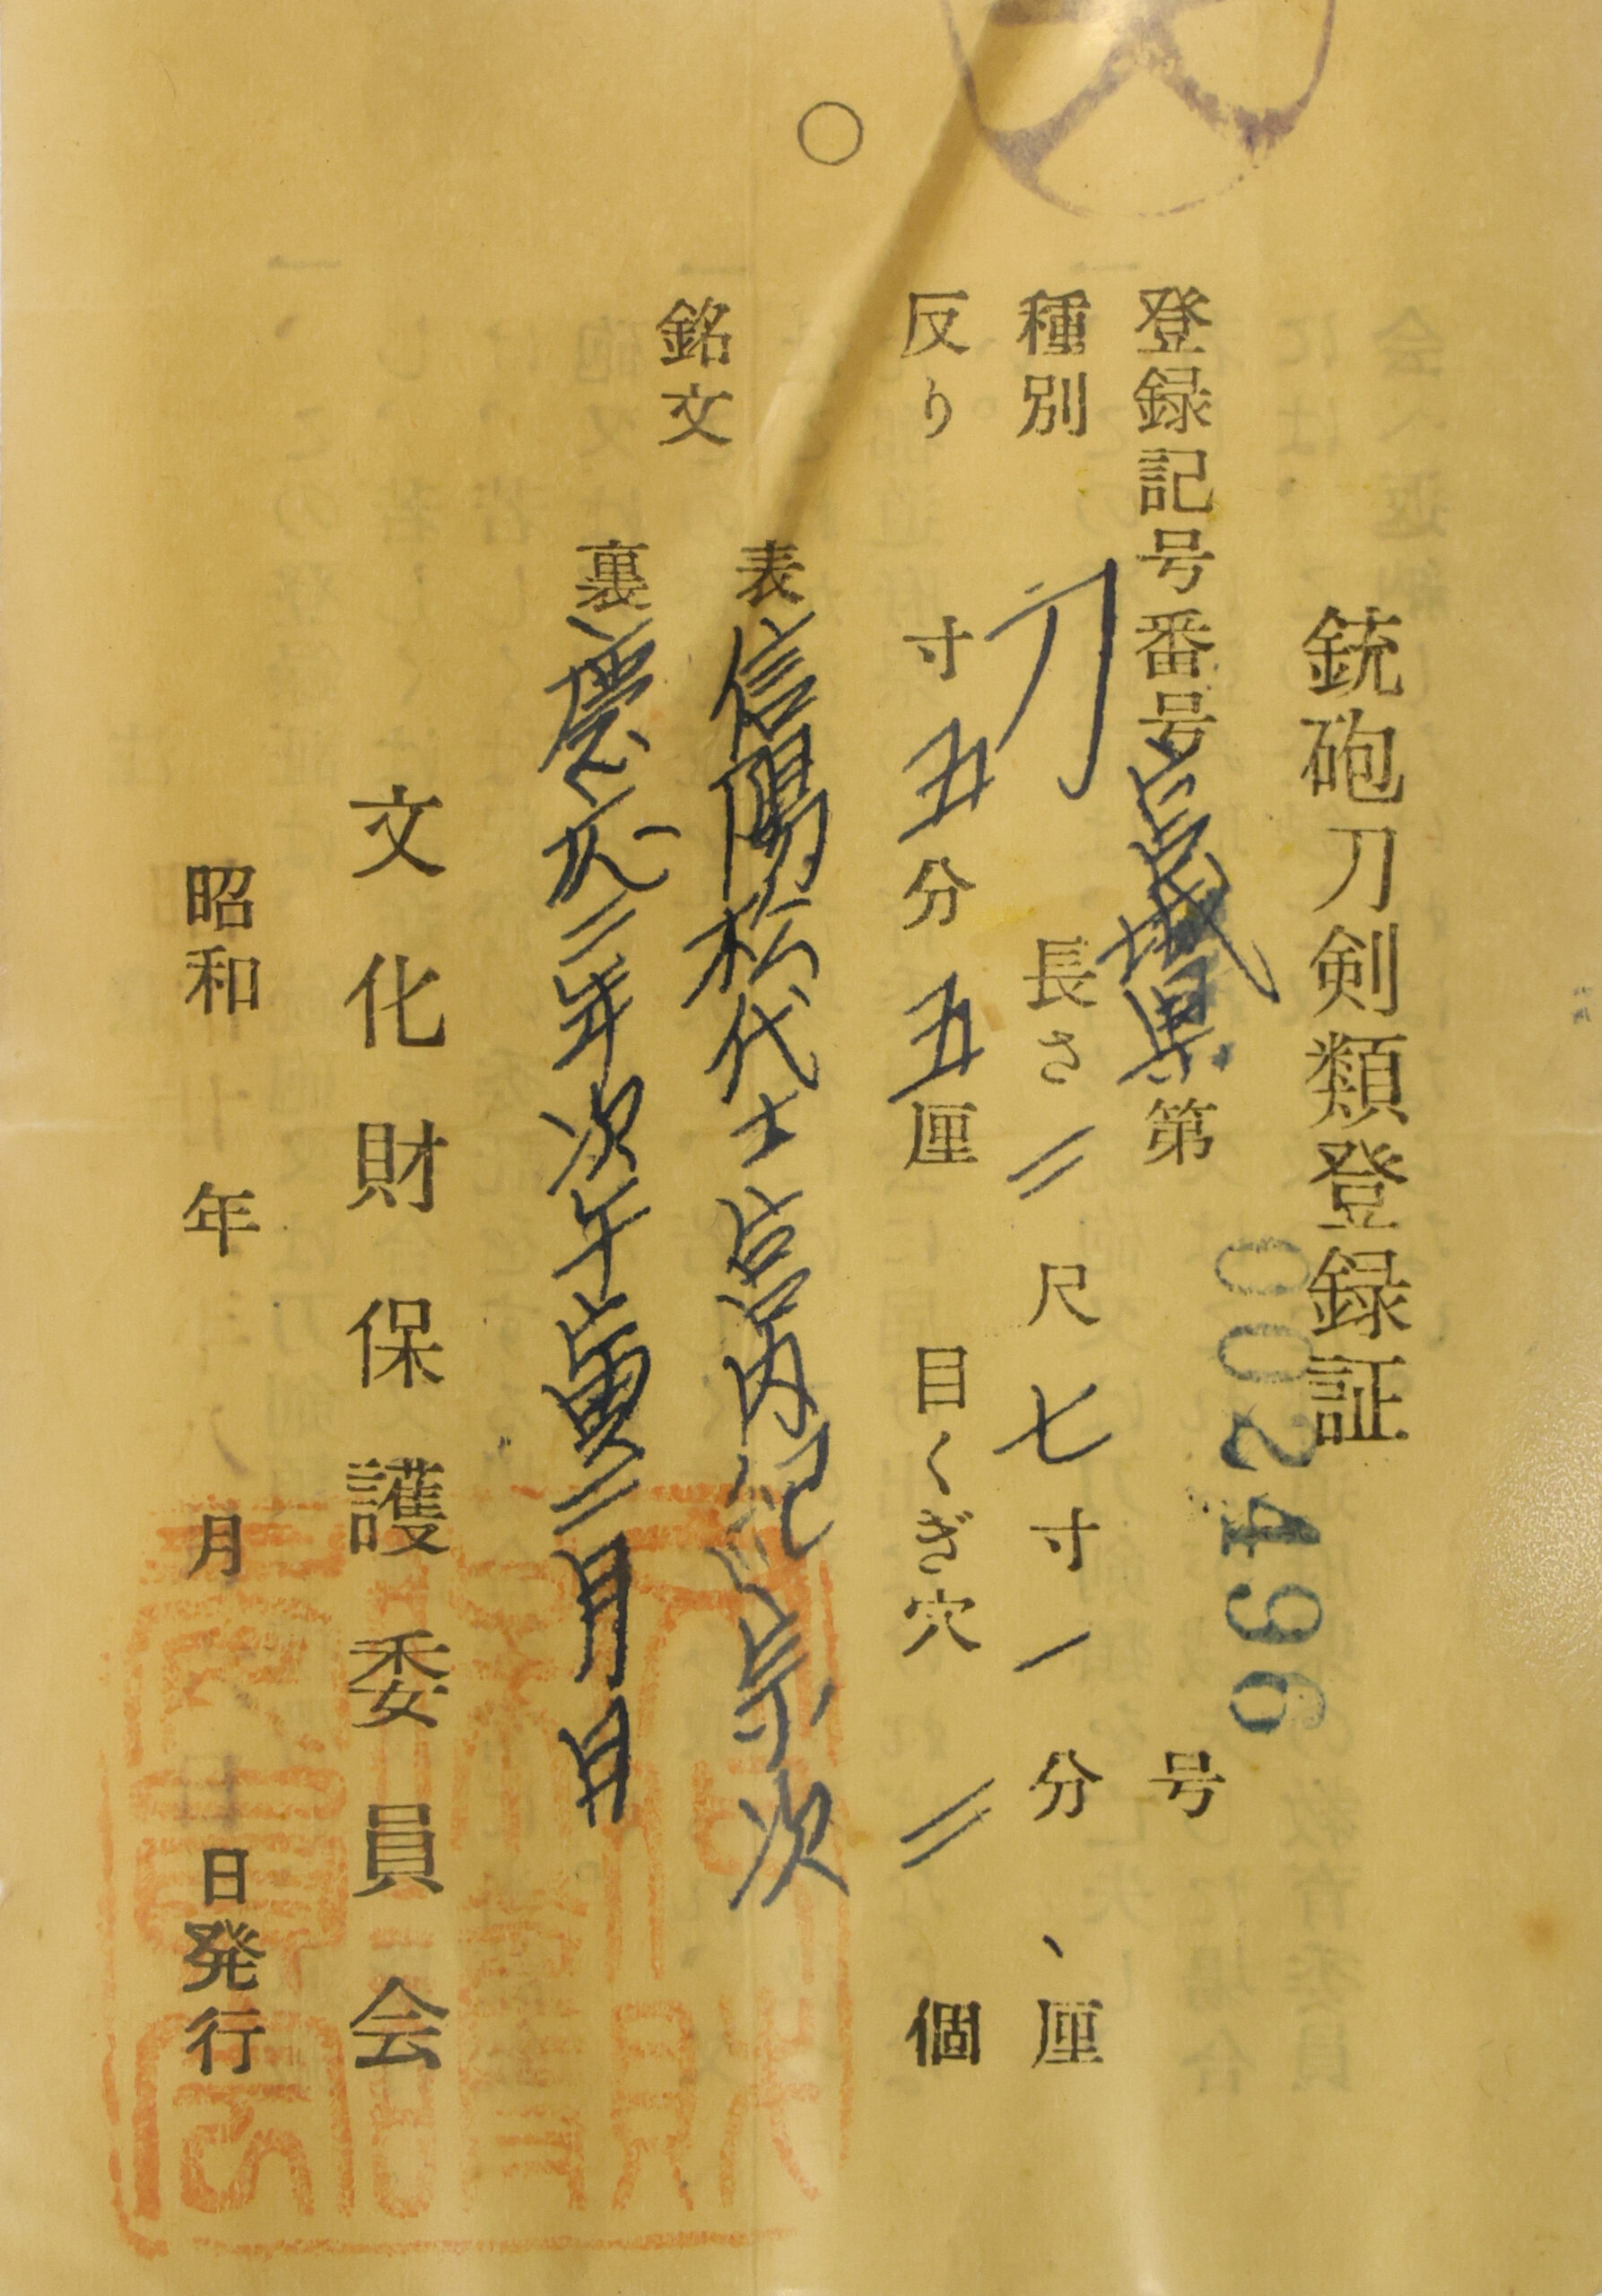 銃砲刀剣類登録証
登録記号番号宮城県第002496号
種別 刀 長さ 二尺七寸一分、厘
反り 寸五分五厘 目くぎ穴 二個
銘文
表 信陽松代士宮内記宗次
裏 慶応二年次午寅二月日
文化財保護委員会
昭和 年 月 日発行